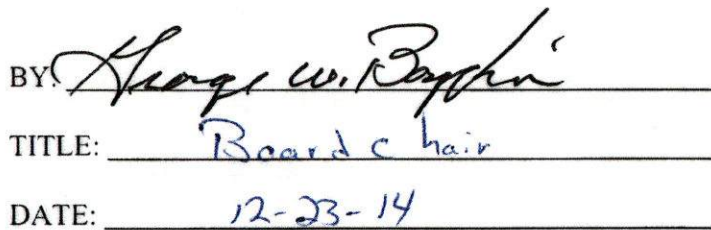 BY: George W.
TITLE: Board Chair
DATE: 12-23-14